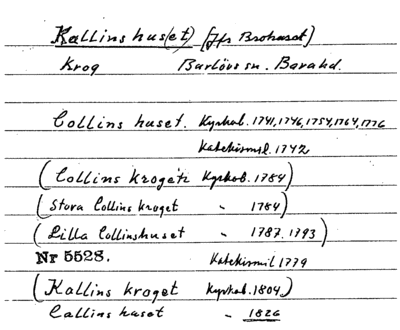 Kallinshus(et) [Jfr Brohuset]
Krog Burlövs sn. Bara hd.
Collins huset. Kyrkob. 1741, 1746, 1754, 1764, 1776
Katekismil. 1742
(Collins krogen Kyrkob. 1784)
(Stora Collins kroget " 1784)
(Lilla Collinshuset " 1787, 1793)
Nr 5528. Katekismil 1779
(Kallins kroget Kyrkob. 1804.)
Callins huset " 1826